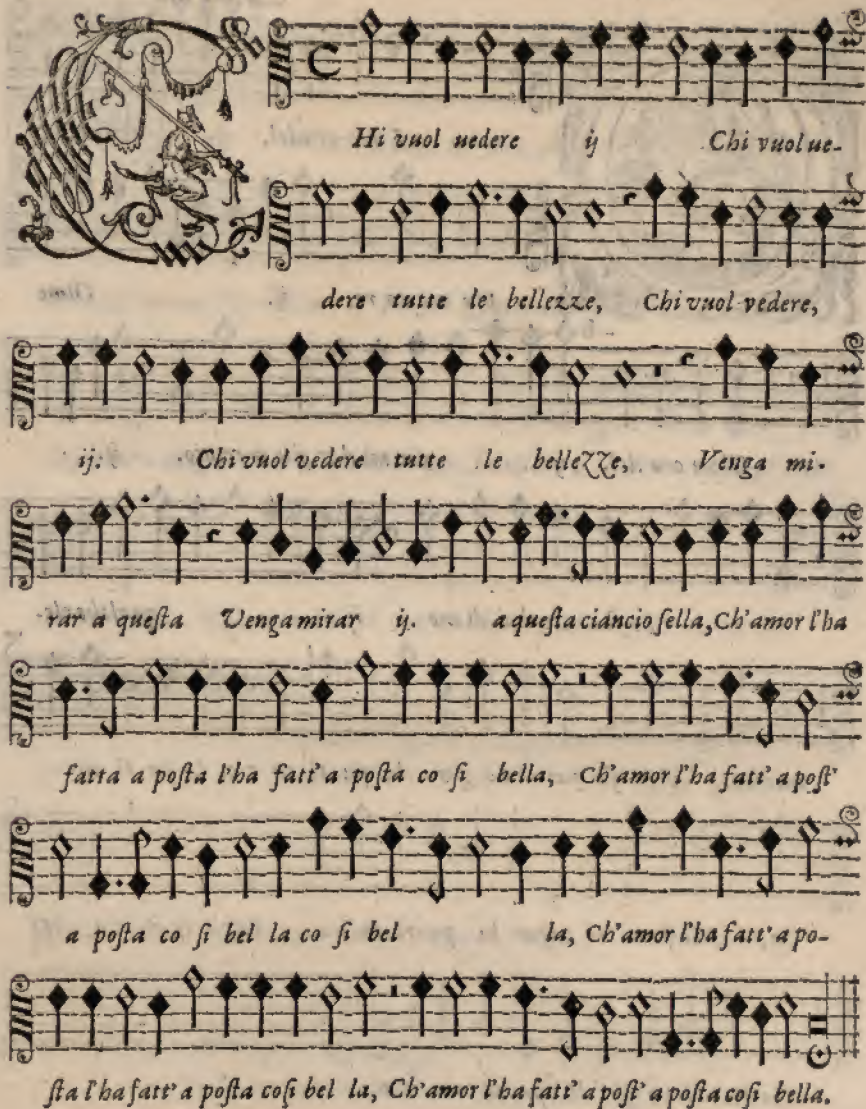 CHi vuol uedere ij Chi vuol ue-
dere tutte le bellezze, Chi vuol vedere,
ij: Chi vuol vedere tutte le bellezze, Venga mi-
rar a queſta Venga mirar ij. a queſta ciancio ſella, Ch'amor l'ha
fatta a poſta l'ha fatt' a poſta co ſi bella, Ch'amor l'ha fatt' a poſt'
a poſta co ſi bel la co ſi bel la, Ch'amor l'ha fatt' a po-
ſta l'ha fatt' a poſta coſi bel la, Ch'amor l'ha fatt' a poſt' a poſta coſi bella.